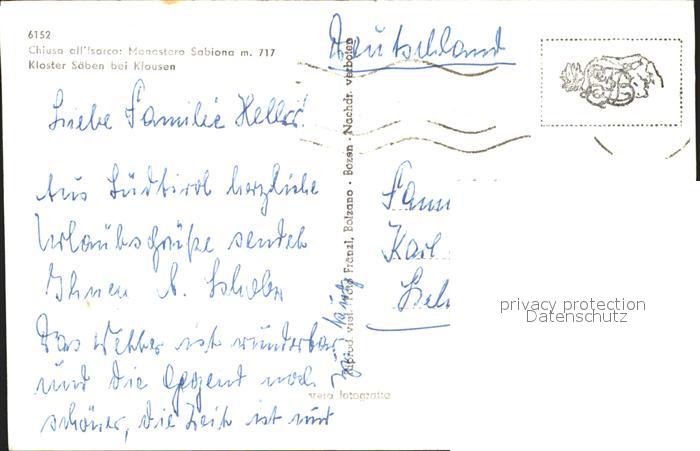 6152
Chiusa all'Isarco: Monastero Sabiona m. 717
Kloster Säben bei Klausen
Deutschland
Liebe Familie Heller!
Aus Südtirol herzliche
Urlaubsgrüße sendet
Ihnen
Das Wetter ist wunderbar
und die Gegend noch
schöner, die Zeit ist nur
zu kurz
Fränzl, Bolzano - Bozen - Nachdr. verboten
vera fotografia
Fam
Karl
privacy protection
Datenschutz